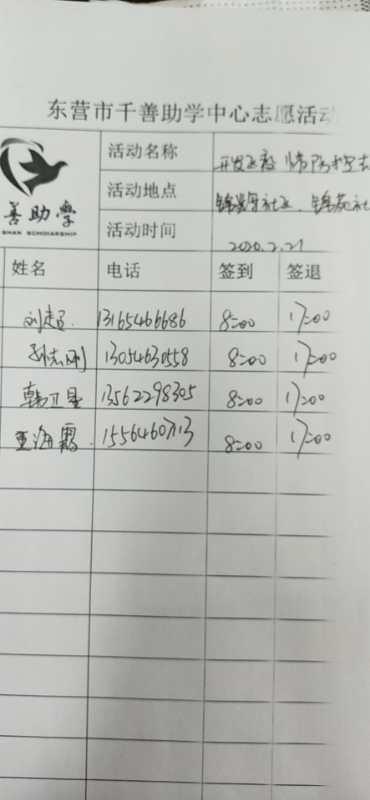 东营市千善助学中心志愿活动
善助學
SHAN SCHOLARSHIP
活动名称 开发区
活动地点 社区、锦苑社
活动时间 2020.2.21
姓名 电话 签到 签退
刘 13165466686 8:00 17:00
孙志刚 13054630558 8:00 17:00
韩卫星 13562298305 8:00 17:00
王海霞 15564607713 8:00 17:00